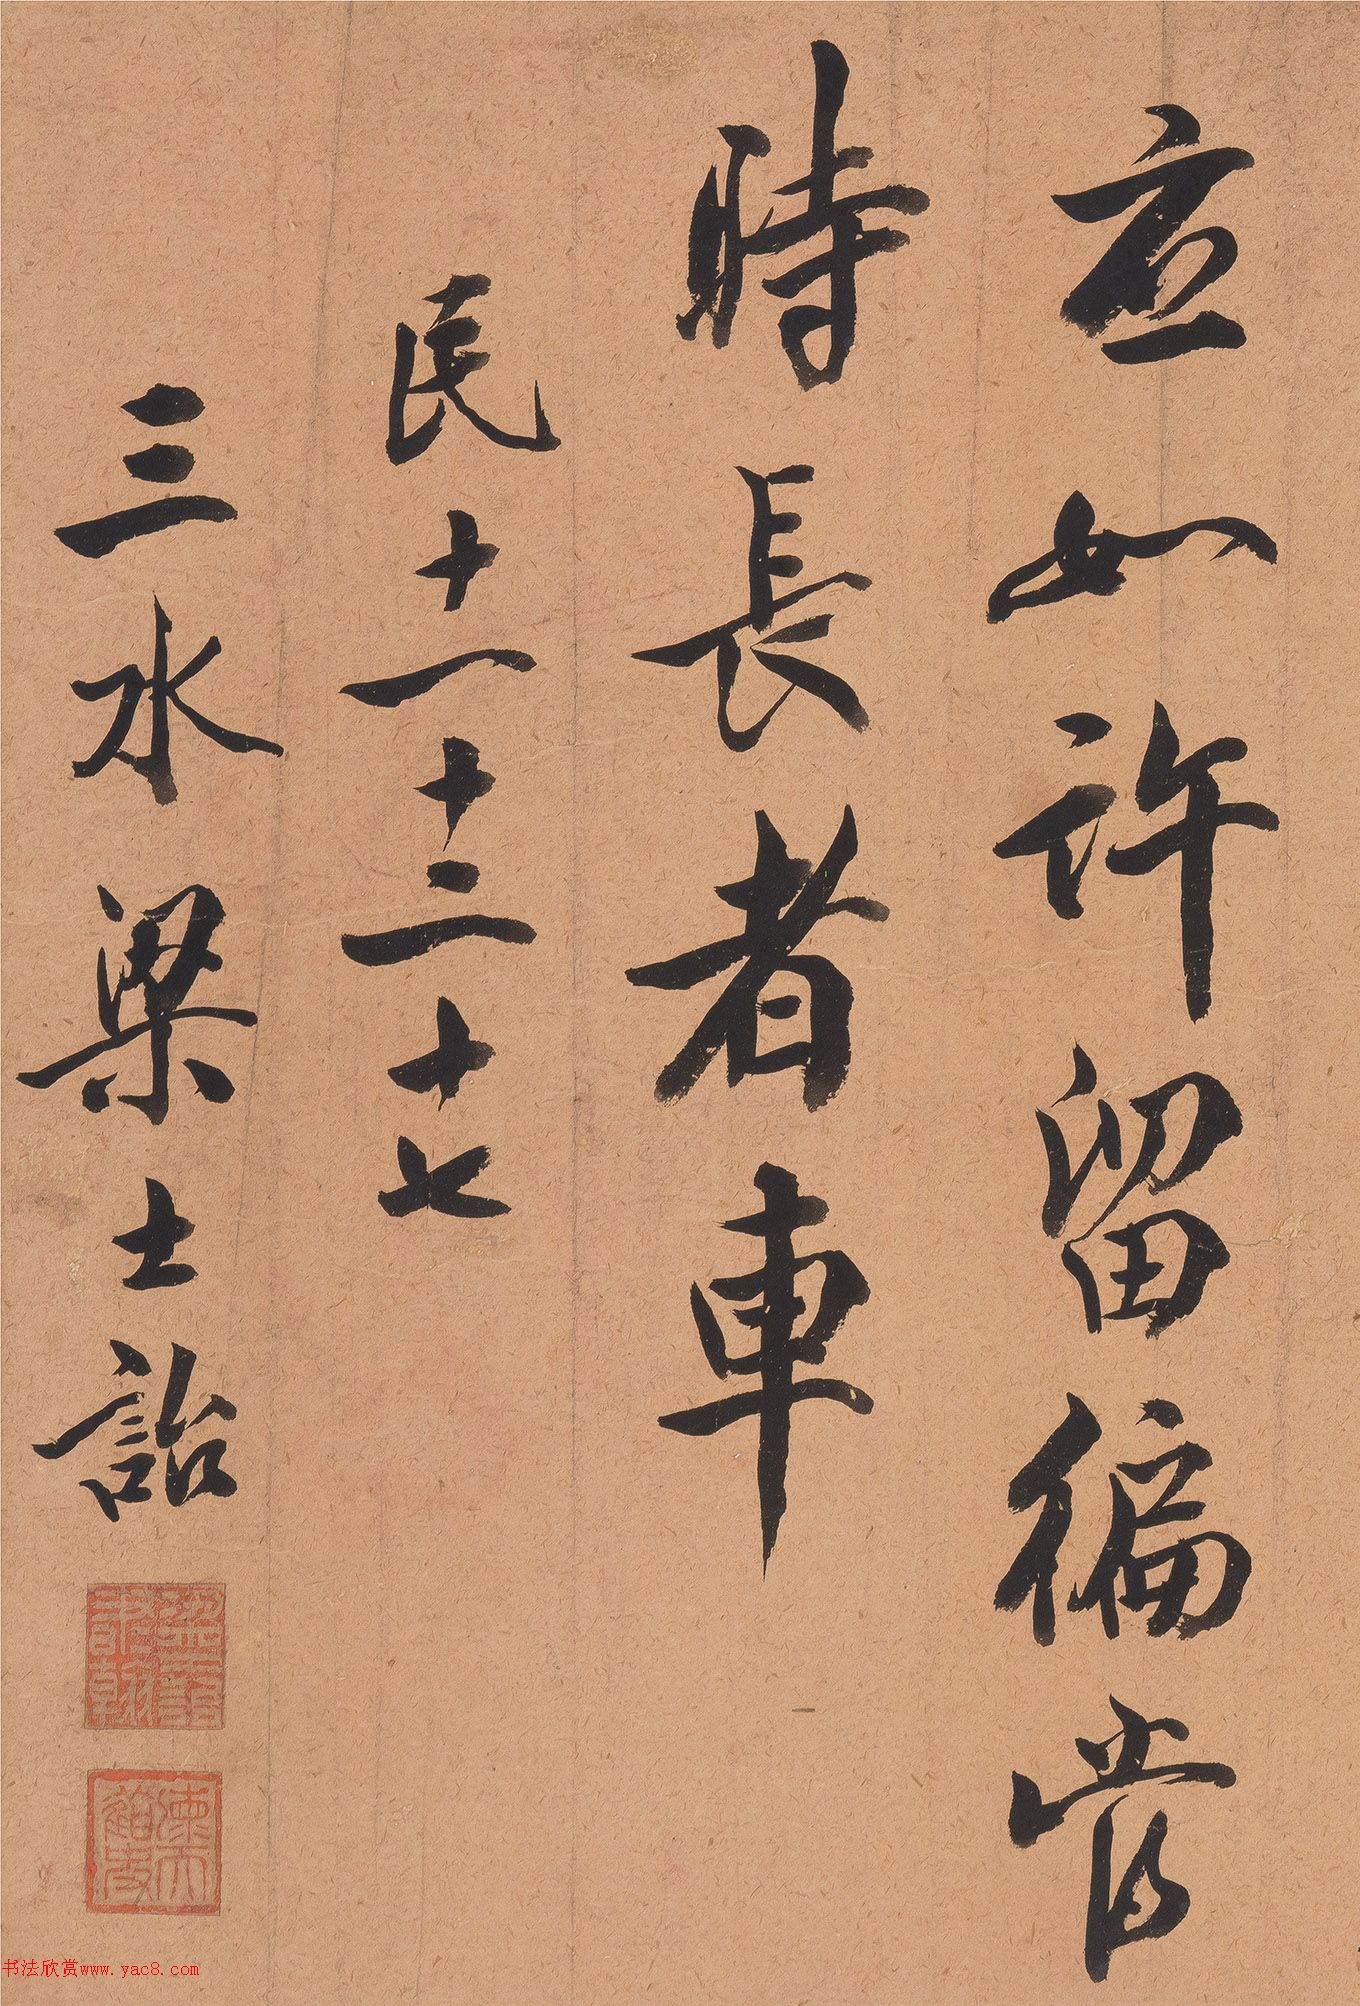 立如許留徧
時長者車
民十一十二十七
三水梁士詒
书法欣赏www.yac8.com